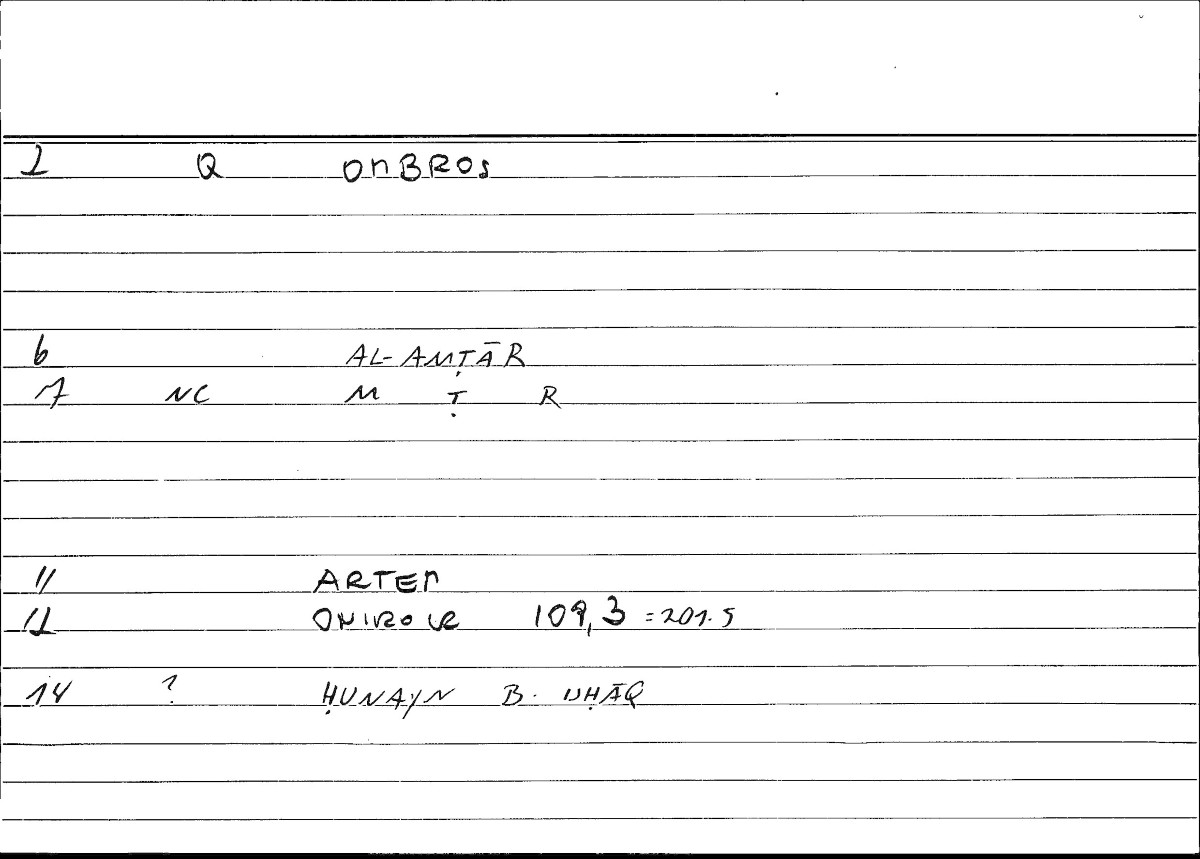 1 Q OMBROS
6 AL-AMṬĀR
7 NC M Ṭ R
11 ARTEM
12 ONIROCR 109,3 =201.5
14 ? ḤUNAYN B. ISḤĀQ